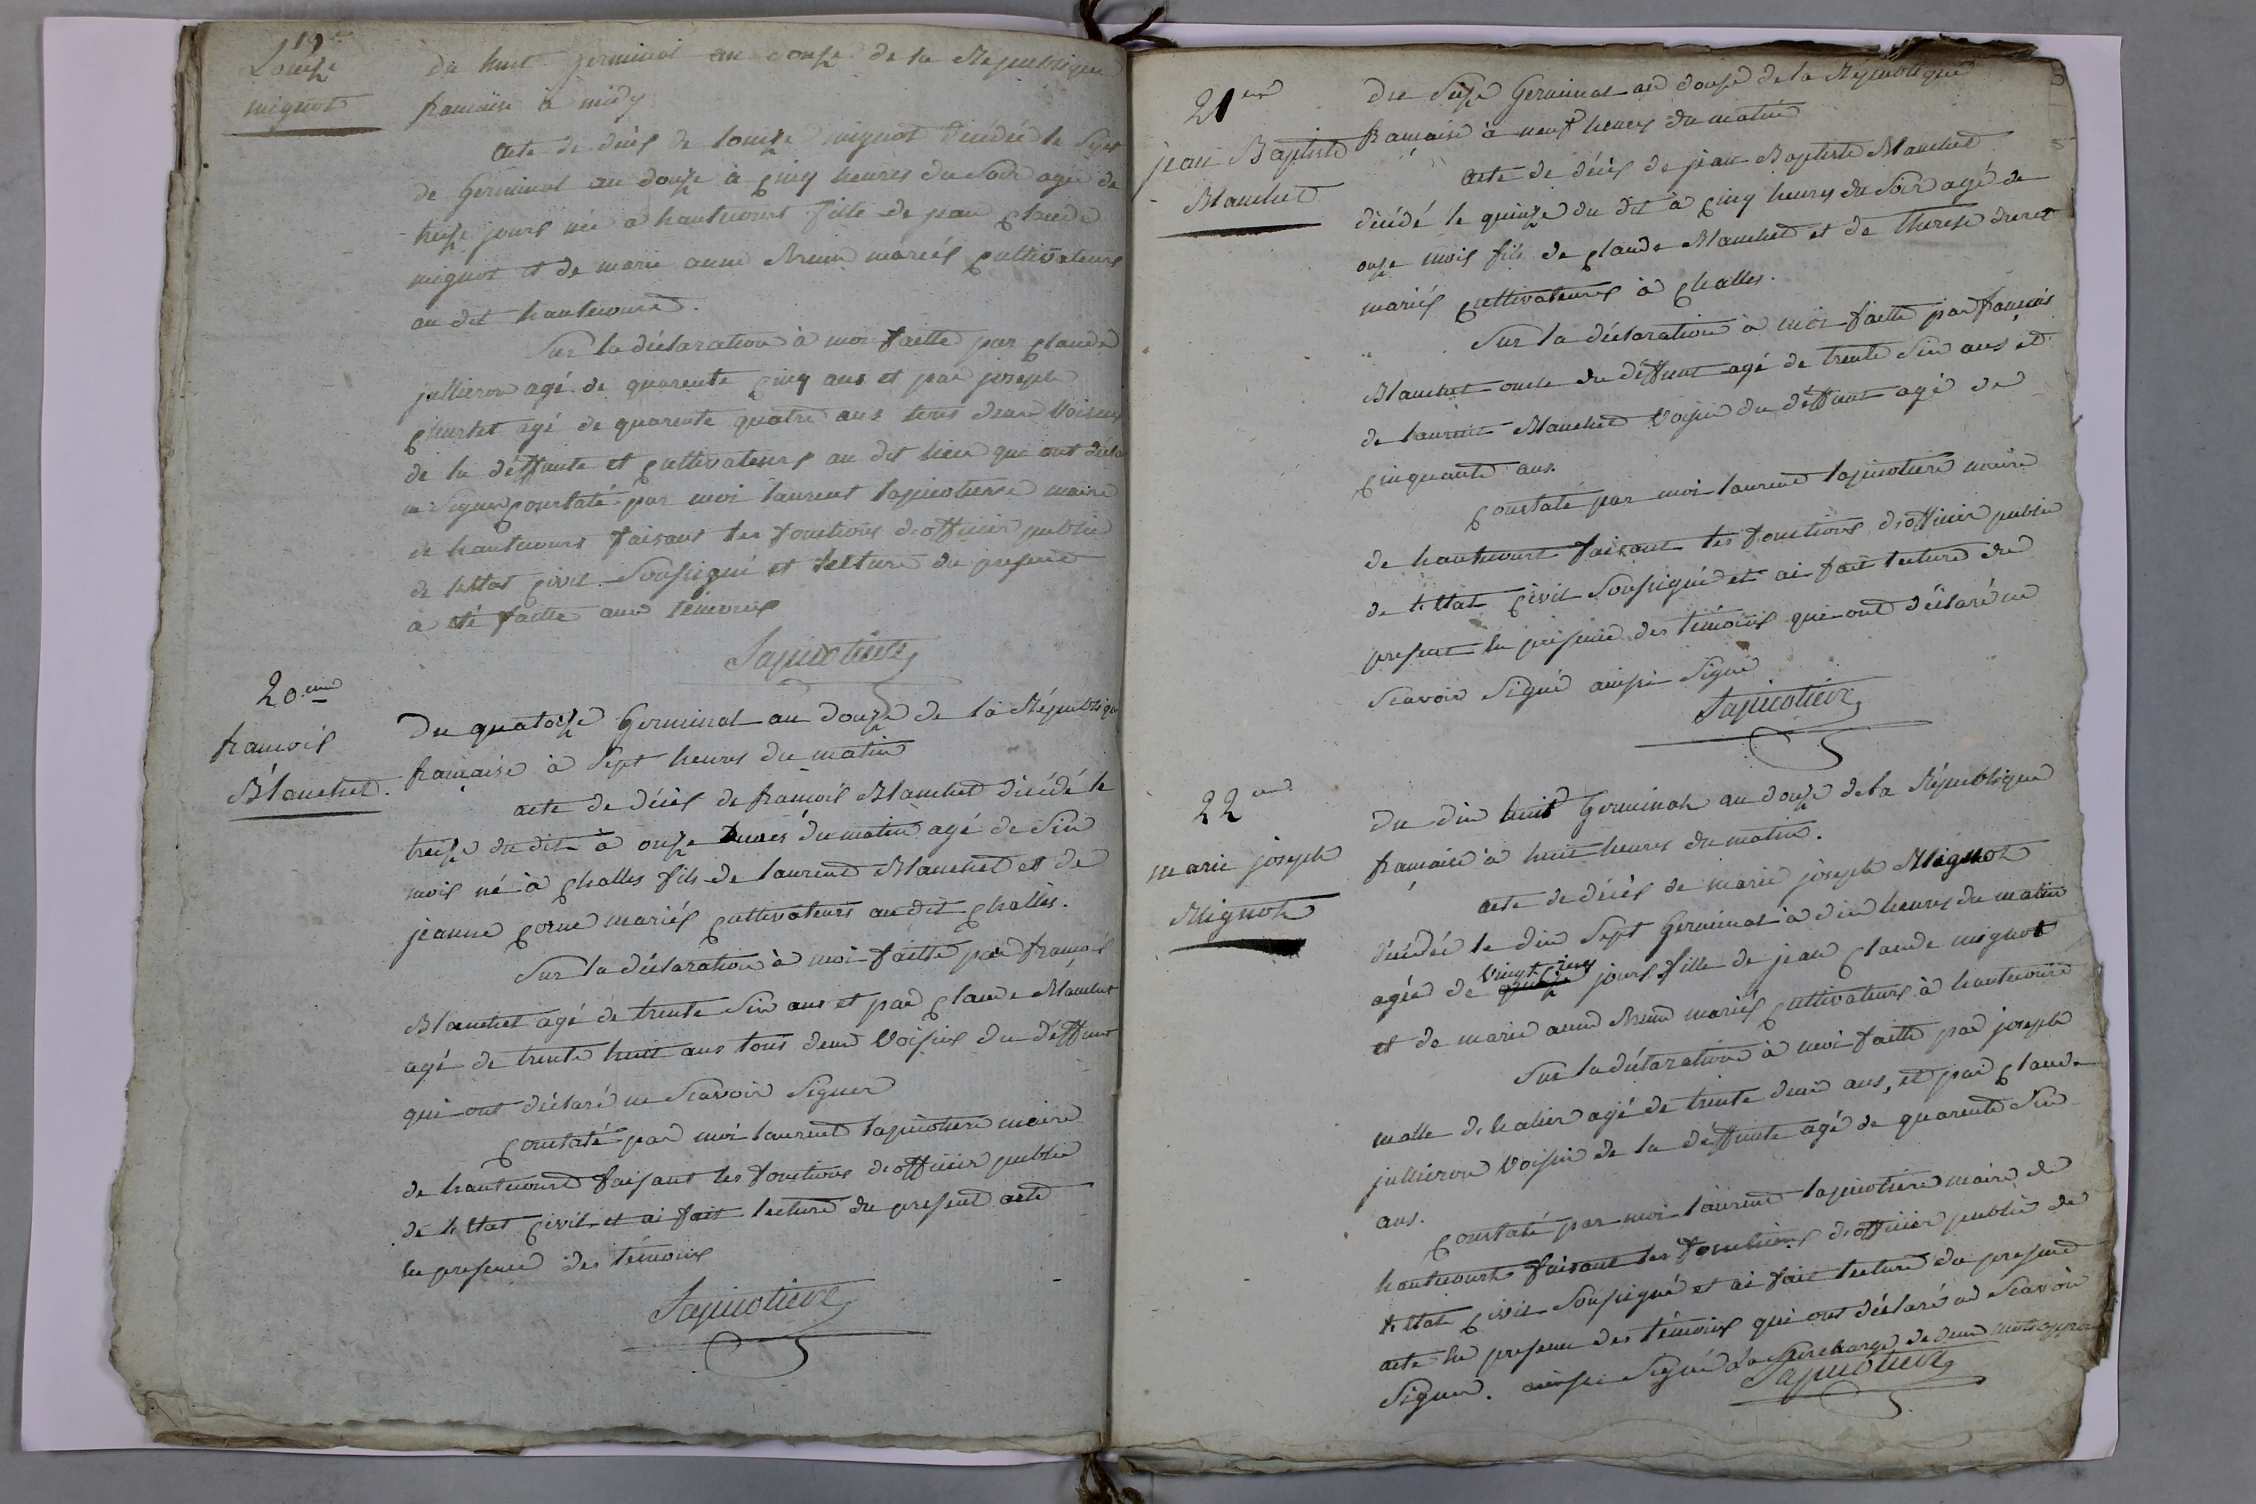 19e
Louise
mignot
du huit germinal an douze de la Republique
francaise à midy
acte de décés de louise mignot décédée le Sept
de Germinal an douze à cinq heures du Soir agée de
treize jours née a hautecourt fille de jean claude
mignot et de marie anne Brun mariés cultivateurs
au dit hautecourt.
Sur la déclaration à moi faitte par claude
jullieron agé de quarente cinq ans et par joseph
agé de quarente quatre ans tous deux voisins
de la déffunte et cultivateurs au dit lieu qui ont décla
ne Signer constaté par moi laurent lapicotiere maire
de hautecourt faisant les fonctions d'officier public
de lettat civil Soussigné et lecture du present
a été faitte aux témoins
Lapicotiere
20.eme
francois
Blanchet.
Du quatorze Germinal an douze de la République
francaise à Sept heures du matin
acte de décés de francois Blanchet décédé le
treize du dit à onze heures du matin agé de Six
mois né à challes fils de laurent Blanchet et de
jeanne corne mariés cultivateurs audit challes.
Sur la déclaration à moi faitte par francois
Blanchet agé de trente Six ans et par claude Blanchet
agé de trente huit ans tous deux voisins du déffunt
qui ont déclaré ne Scavoir Signer
constaté par moi laurent lapicotiere maire
de hautecourt faisant les fonctions d'officier public
de lettat civil et ai fait lecture du present acte
en presence des témoins
Lapicotiere
21eme
jean Baptiste
Blanchet
Du Seize Germinal an douze de la République
francaise à neuf heures du matin
acte de décés de jean Baptiste Blanchet
décédé le quinze du dit à cinq heures du Soir agé de
onze mois fils de claude Blanchet et de therese
mariés cultivateurs à challes.
Sur la déclaration à moi faitte par francois
Blanchet oncle du déffunt agé de trente Six ans et
de laurent Blanchet voisin du déffunt agé de
cinquante ans.
constaté par moi laurent lapicotiere maire
de hautecourt faisant les fonctions d'officier public
de lettat civil Soussigné et ai fait lecture du
present en presence des témoins qui ont déclaré ne
Scavoir Signé ainsi Signé
Lapicotiere
22eme
marie joseph
Mignot
Du dix huit Germinal an douze de la République
francaise à huit heures du matin.
acte de décés de marie joseph Mignot
décédée le dix Sept Germinal à dix heures du matin
agée de vingt cinq jours fille de jean claude mignot
et de marie anne Brun mariés cultivateurs à hautecourt
Sur la déclaration à moi faitte par joseph
agé de trente deux ans, et par claude
jullieron voisin de la déffunte agé de quarente Six
ans.
constaté par moi laurent lapicotiere maire de
hautecourt faisant les fonctions d'officier public de
lettat civil Soussigné et ai fait lecture du present
acte en presence des témoins qui ont déclaré ne Scavoir
Signer. ainsi Signé La Surcharge de deux mots
Lapicotiere